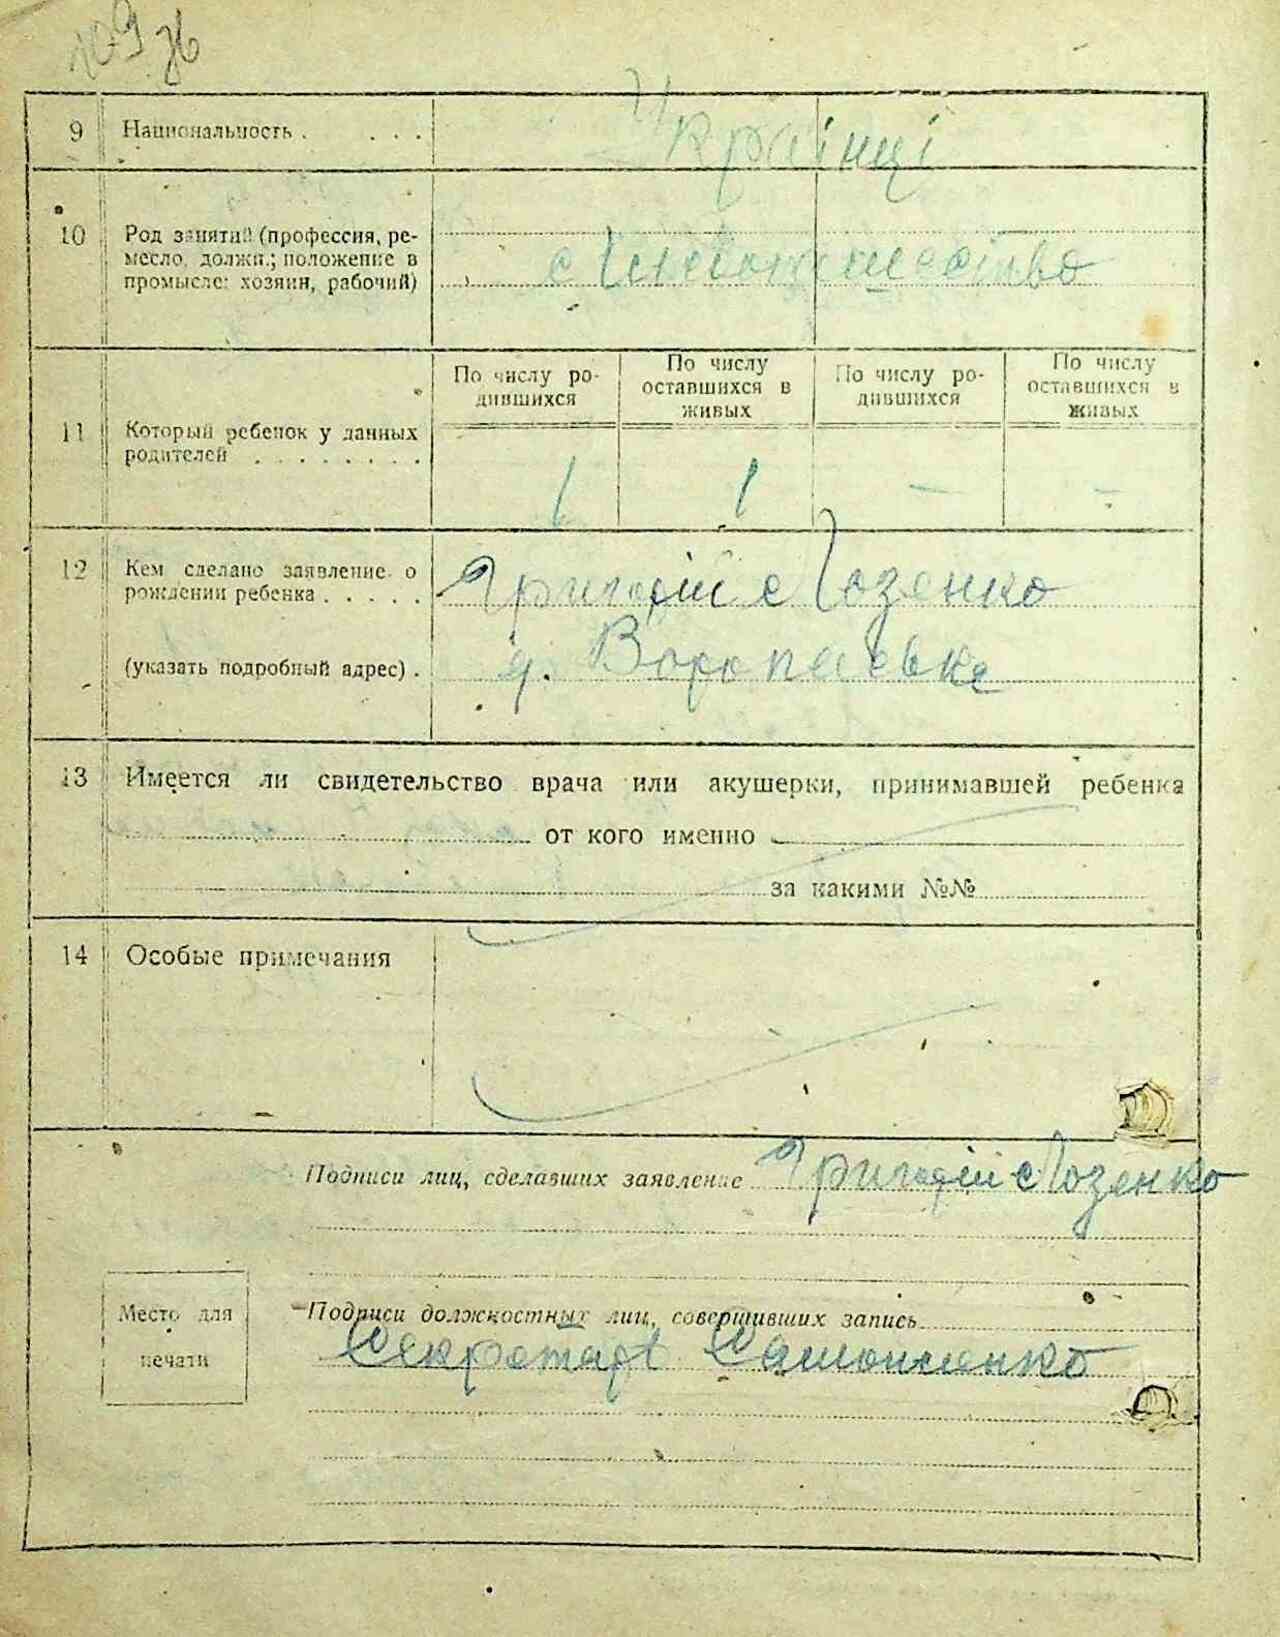 109 зв
9 Национальность . . . . Українці
10 Род занятий (профессия, ре-
месло, должн.; положение в
промысле: хозяин, рабочий)
11 Который ребенок у данных
родителей . . . . . . . .
По числу ро-
дившихся
По числу
оставшихся в
живых
По числу ро-
дившихся
По числу
оставшихся в
живых
1 1 - -
12 Кем сделано заявление о
рождении ребенка . . . . . Григорій Лозенко
(указать подробный адрес) .
13 Имеется ли свидетельство врача или акушерки, принимавшей ребенка
от кого именно
за какими №№
14 Особые примечания
Подписи лиц, сделавших заявление Григорій Лозенко
Место для
печати
Подписи должностных лиц, совершивших запись
Секретарь Самойленко